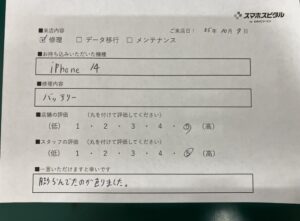 スマホスピタル
■来店内容
ご来店日: 25年 10月 9日
☑ 修理 □ データ移行 □ メンテナンス
■お持ち込みいただいた機種
iPhone 14
■修理内容
バッテリー
■店舗の評価 (丸を付けて評価してください)
(低) 1 ・ 2 ・ 3 ・ 4 ・ 5 (高)
■スタッフの評価 (丸を付けて評価してください)
(低) 1 ・ 2 ・ 3 ・ 4 ・ 5 (高)
■一言いただけますと幸いです
膨らんでたのが直りました。